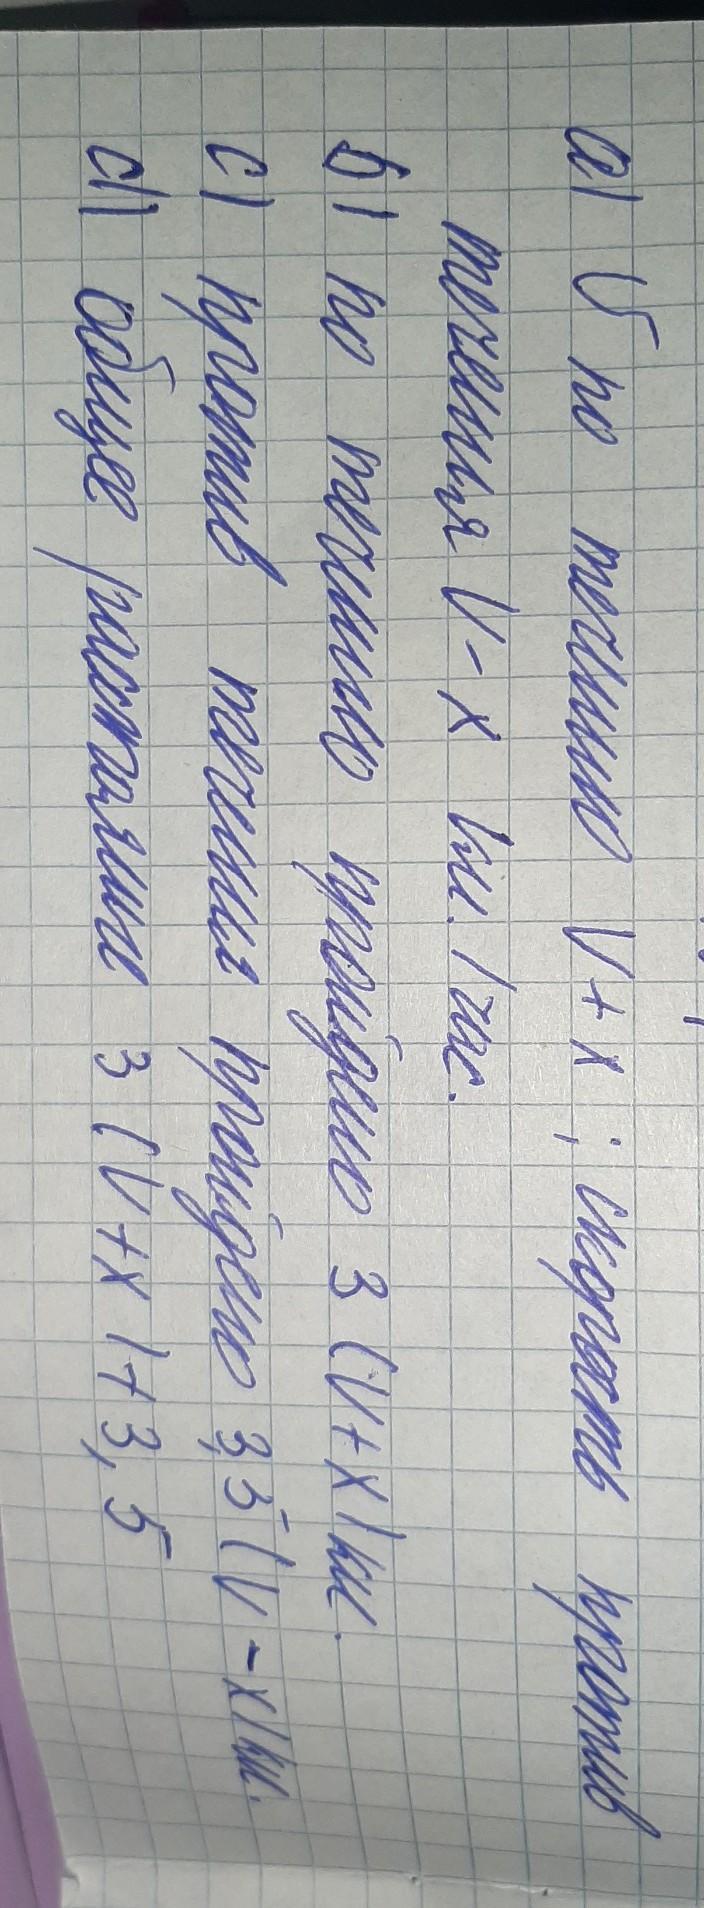 a) V по течению V+x ; скорость против
теченья V-x км./час.
b) по течению пройдено 3(V+x)км.
c) против теченья пройдено 3,5(V-x)км.
d) общее расстояние 3(V+x)+3,5